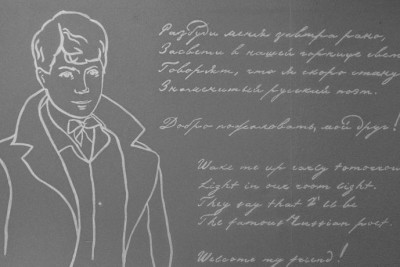 Разбуди меня завтра рано,
Засвети в нашей горнице свет.
Говорят, что я скоро стану
Знаменитый русский поэт.
Добро пожаловать, мой друг!
Wake me up early tomorrow
Light in our room light.
They say that I'll be
The famous Russian poet.
Welcome my friend!